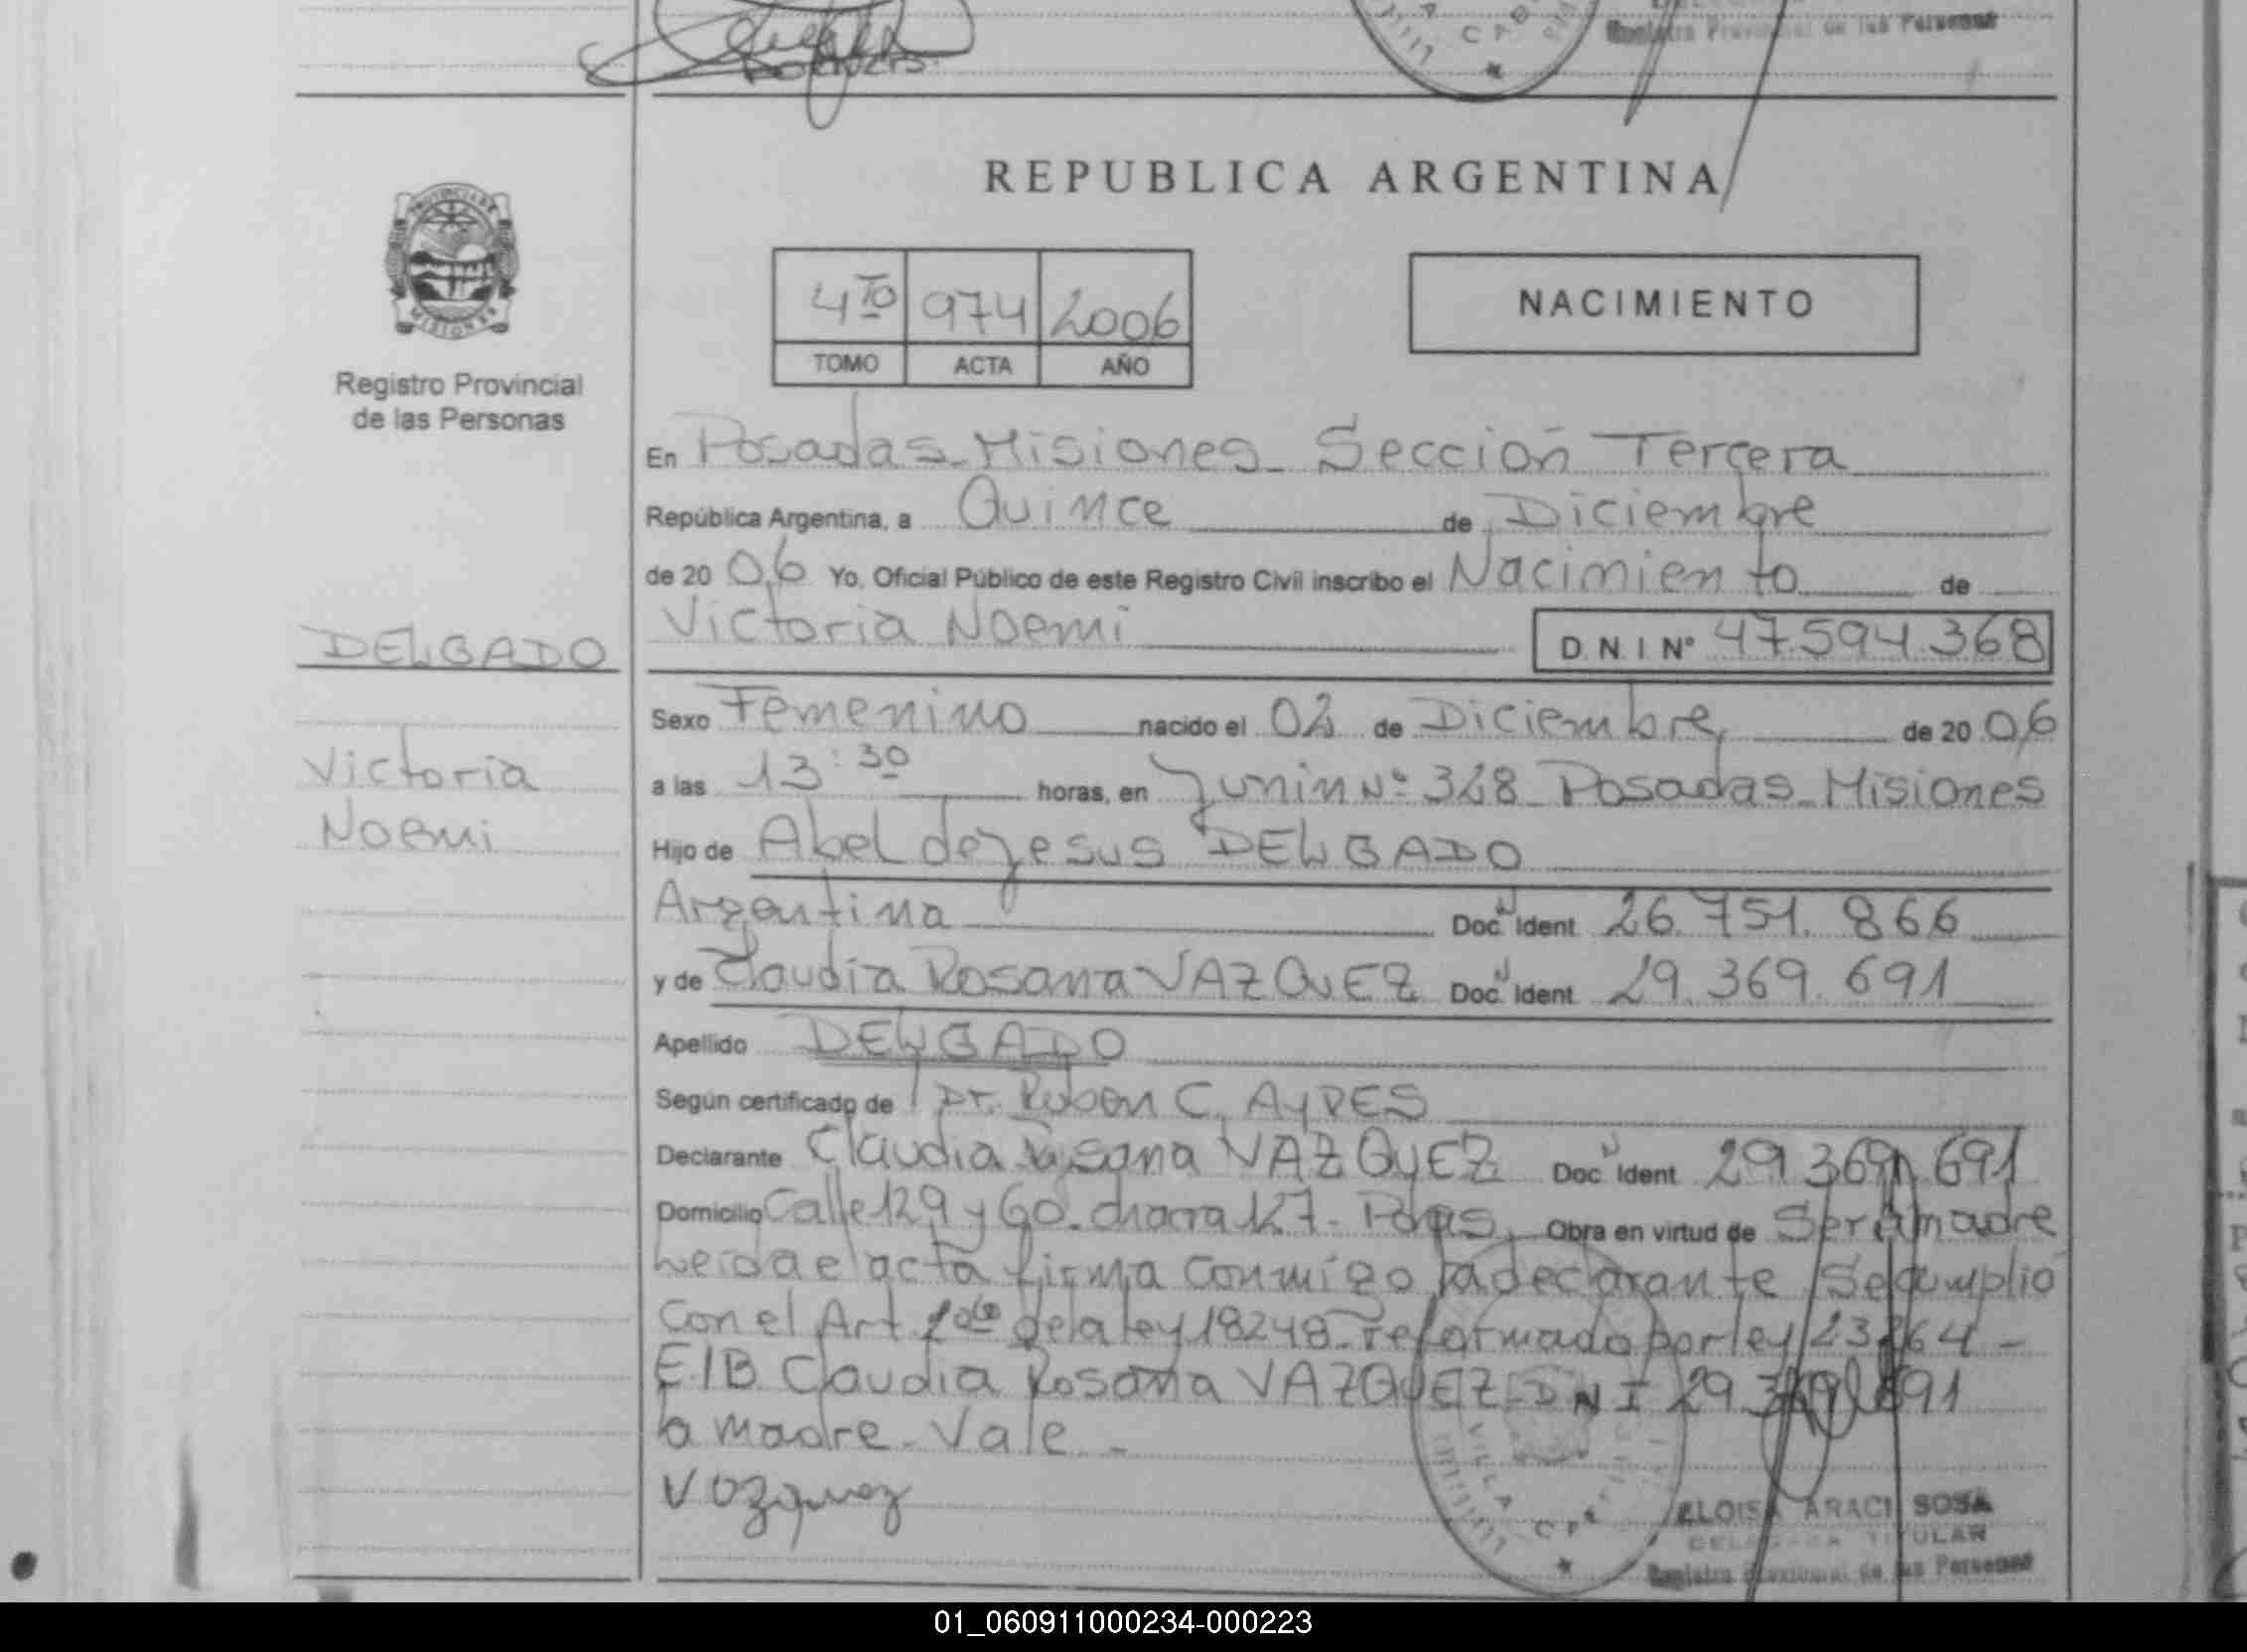 Registro Provincial de las Personas
REPUBLICA ARGENTINA
PROVINCIA DE
MISIONES
Registro Provincial
de las Personas
4to 974 2006
TOMO ACTA AÑO
NACIMIENTO
En Posadas - Misiones - Sección Tercera
República Argentina, a Quince de Diciembre
de 20 06 Yo, Oficial Público de este Registro Civil inscribo el Nacimiento de
Victoria Noemi D.N.I Nº 47.594.368
DELGADO
Sexo Femenino nacido el 02 de Diciembre de 20 06
Victoria
Noemi
a las 13:30 horas, en Junin Nº 328 - Posadas - Misiones
Hijo de Abel de Jesus DELGADO
Argentina Doc. Ident 26.751.866
y de Claudia Rosana VAZQUEZ Doc. Ident 29.369.691
Apellido DELGADO
Según certificado de Dr. Ruben C. AYRES
Declarante Claudia Rosana VAZQUEZ Doc. Ident 29.369.691
Domicilio Calle 129 y 60. chacra 127 - Pdas Obra en virtud de Ser la madre
Leida el acta firma conmigo la declarante Se cumplio
Con el Art 2do de la ley 18248 - reformado por ley 23264 -
E/B. Claudia Rosana VAZQUEZ - DNI 29.369.691
la madre - Vale -
Vazquez
VILLA
ELOISA ARACI SOSA
DELEGADA TITULAR
Registro Provincial de las Personas
01_060911000234-000223